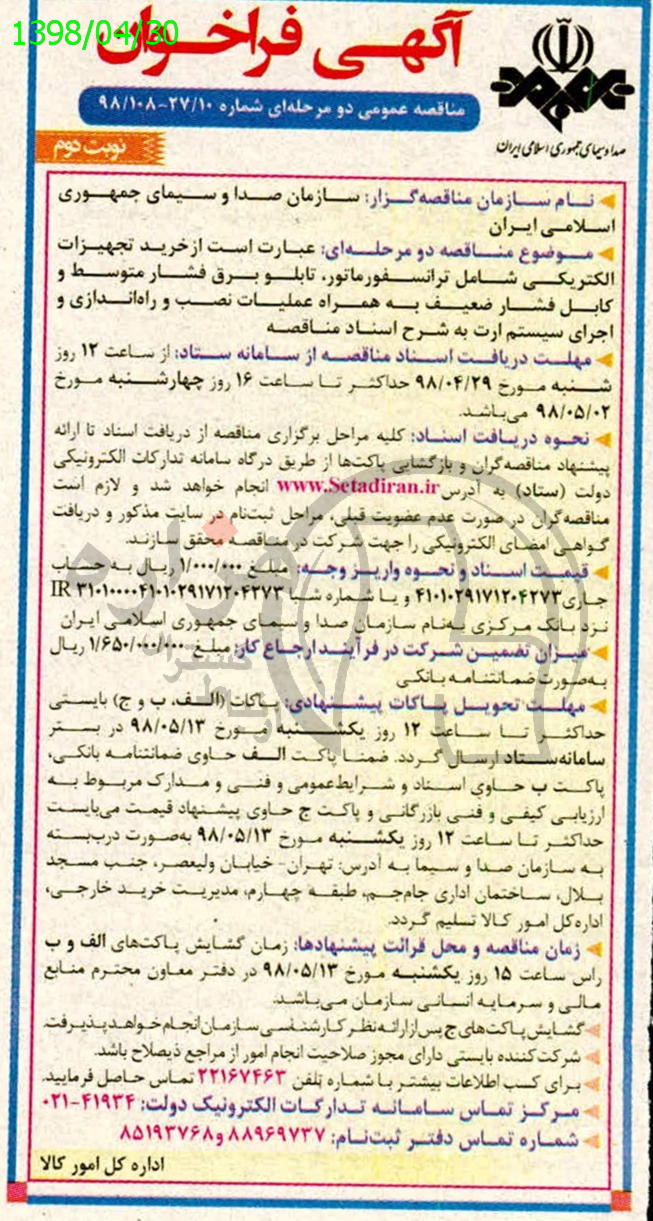 1398/04/30
آگهی فراخوان
مناقصه عمومی دو مرحله‌ای شماره ۲۷/۱۰-۹۸/۱۰۸
صدا و سیمای جمهوری اسلامی ایران
نوبت دوم
نام سازمان مناقصه‌گزار: سازمان صدا و سیمای جمهوری
اسلامی ایران
موضوع مناقصه دو مرحله‌ای: عبارت است از خرید تجهیزات
الکتریکی شامل ترانسفورماتور، تابلو برق فشار متوسط و
کابل فشار ضعیف به همراه عملیات نصب و راه‌اندازی و
اجرای سیستم ارت به شرح اسناد مناقصه
مهلت دریافت اسناد مناقصه از سامانه ستاد: از ساعت ۱۲ روز
شنبه مورخ ۹۸/۰۴/۲۹ حداکثر تا ساعت ۱۶ روز چهارشنبه مورخ
۹۸/۰۵/۰۲ می‌باشد.
نحوه دریافت اسناد: کلیه مراحل برگزاری مناقصه از دریافت اسناد تا ارائه
پیشنهاد مناقصه‌گران و بازگشایی پاکت‌ها از طریق درگاه سامانه تدارکات الکترونیکی
دولت (ستاد) به آدرس www.Setadiran.ir انجام خواهد شد و لازم است
مناقصه‌گران در صورت عدم عضویت قبلی، مراحل ثبت‌نام در سایت مذکور و دریافت
گواهی امضای الکترونیکی را جهت شرکت در مناقصه محقق سازند.
قیمت اسناد و نحوه واریز وجه: مبلغ ۱/۰۰۰/۰۰۰ ریال به حساب
جاری ۴۱۰۱۰۲۹۱۷۱۲۰۴۲۷۳ و یا شماره شبا IR ۳۱۰۱۰۰۰۰۴۱۰۱۰۲۹۱۷۱۲۰۴۲۷۳
نزد بانک مرکزی به‌نام سازمان صدا و سیمای جمهوری اسلامی ایران
میزان تضمین شرکت در فرآیند ارجاع کار: مبلغ ۱/۶۵۰/۰۰۰/۰۰۰ ریال
به‌صورت ضمانتنامه بانکی
مهلت تحویل پاکات پیشنهادی: پاکات (الف، ب و ج) بایستی
حداکثر تا ساعت ۱۲ روز یکشنبه مورخ ۹۸/۰۵/۱۳ در بستر
سامانه ستاد ارسال گردد. ضمنا پاکت الف حاوی ضمانتنامه بانکی،
پاکت ب حاوی اسناد و شرایط عمومی و فنی و مدارک مربوط به
ارزیابی کیفی و فنی بازرگانی و پاکت ج حاوی پیشنهاد قیمت می‌بایست
حداکثر تا ساعت ۱۲ روز یکشنبه مورخ ۹۸/۰۵/۱۳ به‌صورت دربسته
به سازمان صدا و سیما به آدرس: تهران- خیابان ولیعصر، جنب مسجد
بلال، ساختمان اداری جام‌جم، طبقه چهارم، مدیریت خرید خارجی،
اداره کل امور کالا تسلیم گردد.
زمان مناقصه و محل قرائت پیشنهادها: زمان گشایش پاکت‌های الف و ب
راس ساعت ۱۵ روز یکشنبه مورخ ۹۸/۰۵/۱۳ در دفتر معاون محترم منابع
مالی و سرمایه انسانی سازمان می‌باشد.
گشایش پاکت‌های ج پس از ارائه نظر کارشناسی سازمان انجام خواهد پذیرفت.
شرکت کننده بایستی دارای مجوز صلاحیت انجام امور از مراجع ذیصلاح باشد.
برای کسب اطلاعات بیشتر با شماره تلفن ۲۲۱۶۷۴۶۳ تماس حاصل فرمایید.
مرکز تماس سامانه تدارکات الکترونیک دولت: ۴۱۹۳۴-۰۲۱
شماره تماس دفتر ثبت‌نام: ۸۸۹۶۹۷۳۷ و ۸۵۱۹۳۷۶۸
اداره کل امور کالا